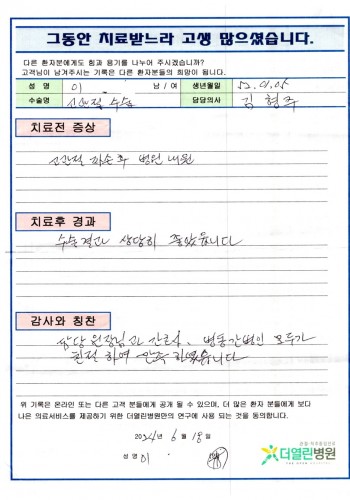 그동안 치료받느라 고생 많으셨습니다.
다른 환자분에게도 힘과 용기를 나누어 주시겠습니까?
고객님이 남겨주시는 기록은 다른 환자분들의 희망이 됩니다.
성 명 이 남 / 여 생년월일 52.01.05
수술명 고관절 수술 담당의사 김형주
치료전 증상
고관절 파손 후 병원 내원
치료후 경과
수술결과 상당히 좋았읍니다
감사와 칭찬
담당 원장님과 간호사, 병동간병인 모두가
친절하여 만족하였습니다
위 기록은 온라인 또는 다른 고객 분들에게 공개 될 수 있으며, 더 많은 환자 분들에게 보다
나은 의료서비스를 제공하기 위한 더열린병원만의 연구에 사용 되는 것을 동의합니다.
2024년 6월 18일
성명 이
더열린병원